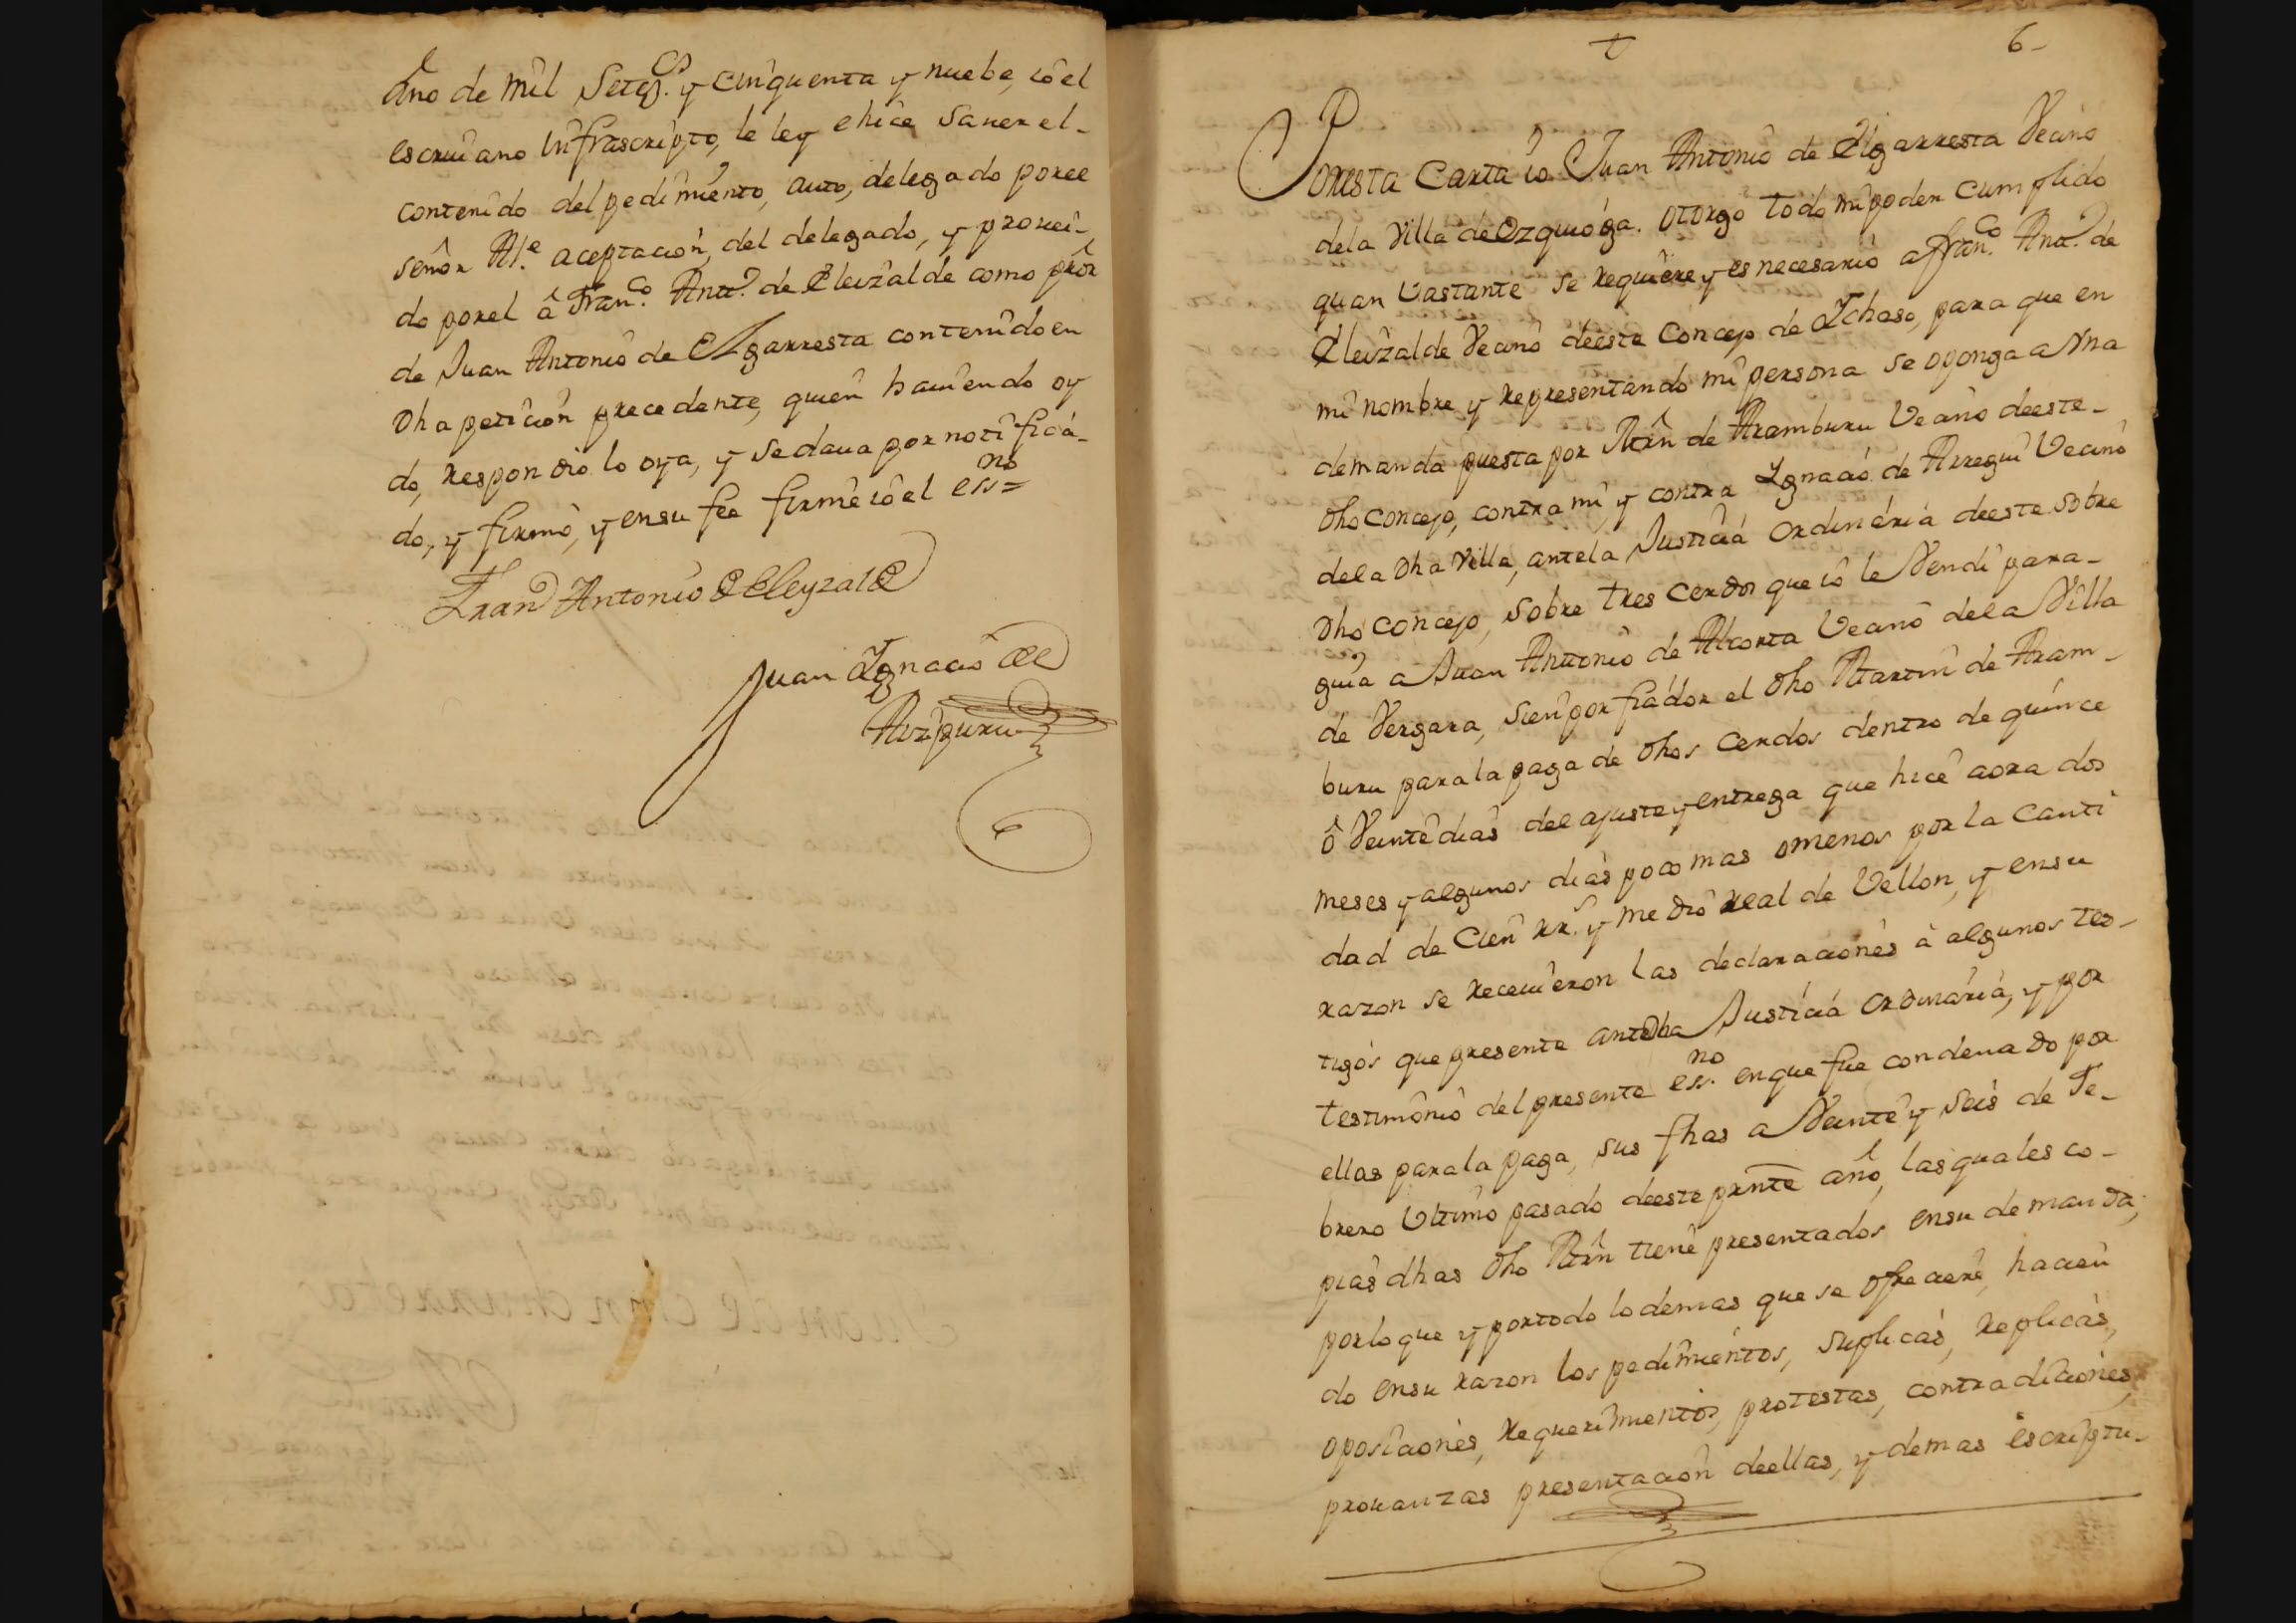 año de mil Setez.os y cinquenta y nuebe, io el
escriuano Infrascripto, le ley e hice sauer el-
contenido del pedimiento, auto, delegado por el
señor Al.e aceptacion, del delegado, y prouei-
do por el â Fran.co Antt.o de Eleizalde como pôr
de Juan Antonio de Elgarresta contenido en
Dha peticion precedente, quien hauiendo oy
do, respondio lo oya, y se daua por notificá-
do, y firmò, y en su fee firmè io el ess.no=
Fran.co Antonio de Eleyzalde
Juan Ignacio de
Aizpuru
t 6-
Por esta Carta io Juan Antonio de Elgarresta Vecino
dela Villa de Ozquioga. otorgo todo mi poder cumplido
quan Vastante se requiere y es necesario a ffran.co Antt.o de
Eleizalde Vecino deeste Concejo de Ichaso, para que en
mi nombre y representando mi persona se oponga a Vna
demanda puesta por Mrñ de Aramburu Vecino deeste-
Dho concejo, contra mi, y contra Ignacio de Arregui Vecino
dela Dha Villa, ante la Justicia ordinária deeste sobre
Dho concejo, sobre tres cerdos que iô le Vendi para-
guia a Juan Antonio de Alcorta Vecino dela Villa
de Vergara, sien por fiador el Dho Martin de Aram-
buru para la paga de Dhos cerdos dentro de quince
ô Veinte dias del ajuste y entrega que hice aora dos
meses y algunos dias poco mas omenos por la canti
dad de Cien rr.s y medio real de Vellon, y en su
razon se receuieron las declaraciones à algunos tes-
tigos que presente ante Dha Justicia ordinária, y por
testimonio del presente ess.no en que fue condenado por
ellas para la paga, sus fhas a Veinte y seis de Fe-
brero Vltimo pasado deeste prnte año, las quales co-
pias dhas Dho Mrñ tiene presentados en su demanda;
por lo que y por todo lo demas que se ofreciere, hacien
do en su razon los pedimientos, suplicas, replicas,
oposiciones, requerimientos, protestas, contradiciones,
prouanzas presentacion deellas, y demas escriptu-